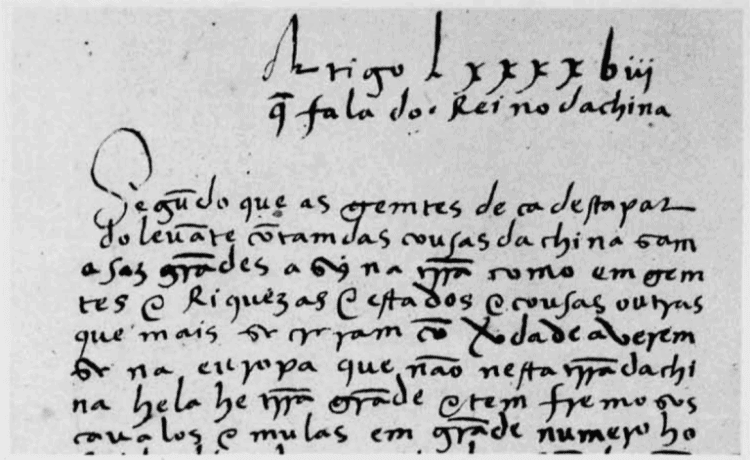 Artigo lxxxxbiij
q̄ fala do Reino dachina
Segūdo que as gemtes de ca desta par
do levāte cōtam das cousas da china sam
asaz grādes asy na trrā como em gem
tes e Riquezas e estados e cousas outras
que mais se cryram cō Vdade averem
se na europa que não nesta trrā da chi
na hela he trrā grāde e tem fremosos
cavalos e mulas em grāde numero ho